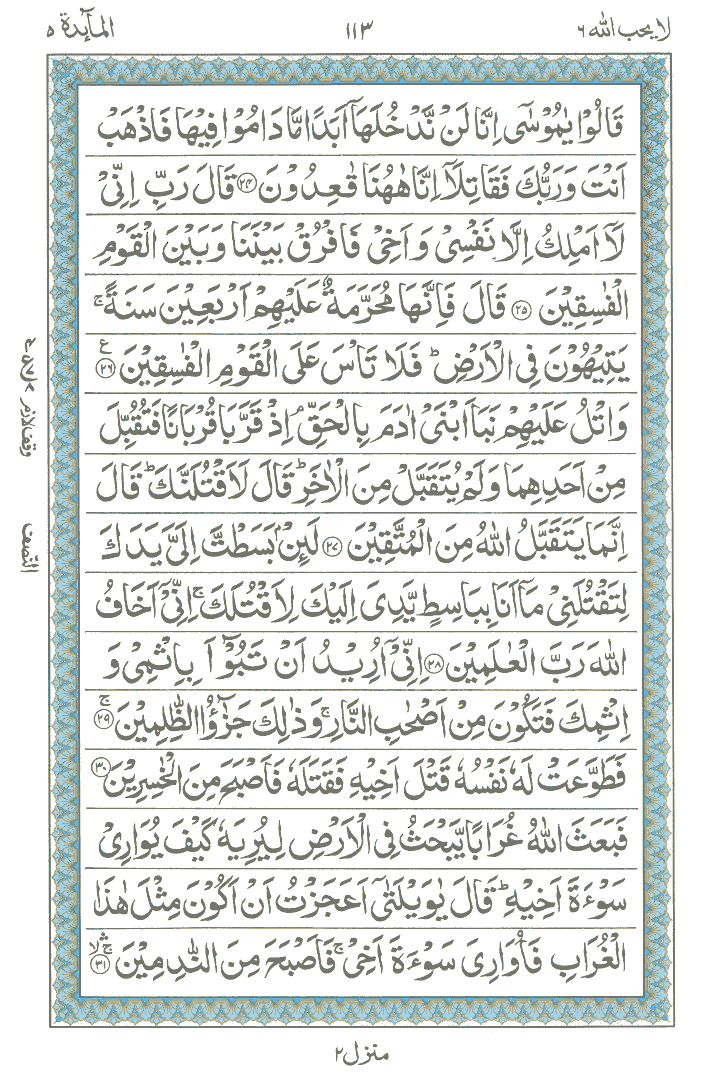 لا یحب الله ۶
۱۱۳
المآىِٕدة ۵
قَالُوْا یٰمُوْسٰۤى اِنَّا لَنْ نَّدْخُلَهَاۤ اَبَدًا مَّا دَامُوْا فِیْهَا فَاذْهَبْ
اَنْتَ وَرَبُّكَ فَقَاتِلَاۤ اِنَّا هٰهُنَا قٰعِدُوْنَ ۲۴ قَالَ رَبِّ اِنِّیْ
لَاۤ اَمْلِكُ اِلَّا نَفْسِیْ وَاَخِیْ فَافْرُقْ بَیْنَنَا وَبَیْنَ الْقَوْمِ
الْفٰسِقِیْنَ ۲۵ قَالَ فَاِنَّهَا مُحَرَّمَةٌ عَلَیْهِمْ اَرْبَعِیْنَ سَنَةً ۚ
یَتِیْهُوْنَ فِی الْاَرْضِ ؕ فَلَا تَاْسَ عَلَى الْقَوْمِ الْفٰسِقِیْنَ ۲۶ ع
وَاتْلُ عَلَیْهِمْ نَبَاَ ابْنَیْ اٰدَمَ بِالْحَقِّ ۘ اِذْ قَرَّبَا قُرْبَانًا فَتُقُبِّلَ
مِنْ اَحَدِهِمَا وَلَمْ یُتَقَبَّلْ مِنَ الْاٰخَرِ ؕ قَالَ لَاَقْتُلَنَّكَ ؕ قَالَ
اِنَّمَا یَتَقَبَّلُ اللّٰهُ مِنَ الْمُتَّقِیْنَ ۲۷ لَىِٕنْۢ بَسَطْتَّ اِلَیَّ یَدَكَ
لِتَقْتُلَنِیْ مَاۤ اَنَا بِبَاسِطٍ یَّدِیَ اِلَیْكَ لِاَقْتُلَكَ ۚ اِنِّیْۤ اَخَافُ
اللّٰهَ رَبَّ الْعٰلَمِیْنَ ۲۸ اِنِّیْۤ اُرِیْدُ اَنْ تَبُوْٓاَ بِاِثْمِیْ وَ
اِثْمِكَ فَتَكُوْنَ مِنْ اَصْحٰبِ النَّارِ ۚ وَذٰلِكَ جَزٰٓؤُا الظّٰلِمِیْنَ ۲۹ ۚ
فَطَوَّعَتْ لَهٗ نَفْسُهٗ قَتْلَ اَخِیْهِ فَقَتَلَهٗ فَاَصْبَحَ مِنَ الْخٰسِرِیْنَ ۳۰
فَبَعَثَ اللّٰهُ غُرَابًا یَّبْحَثُ فِی الْاَرْضِ لِیُرِیَهٗ كَیْفَ یُوَارِیْ
سَوْءَةَ اَخِیْهِ ؕ قَالَ یٰوَیْلَتٰۤى اَعَجَزْتُ اَنْ اَكُوْنَ مِثْلَ هٰذَا
الْغُرَابِ فَاُوَارِیَ سَوْءَةَ اَخِیْ ۚ فَاَصْبَحَ مِنَ النّٰدِمِیْنَ ۳۱
النّصف
منزل۲